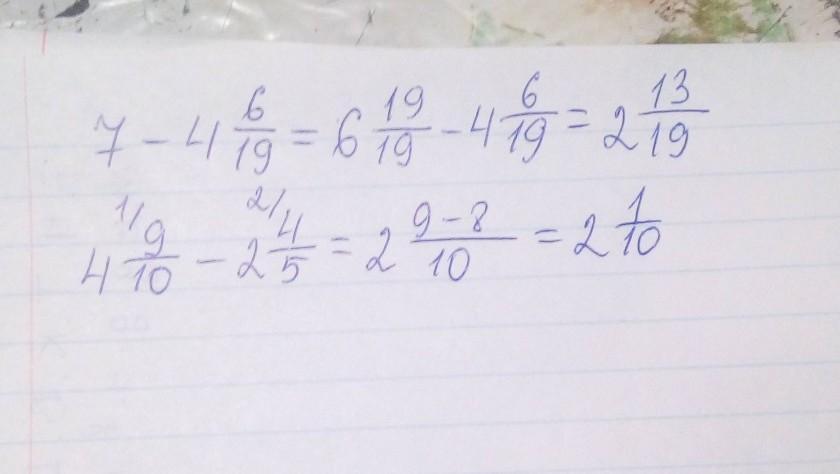 7 - 4 6/19 = 6 19/19 - 4 6/19 = 2 13/19
4 1/ 9/10 - 2 2/ 4/5 = 2 9-8/10 = 2 1/10